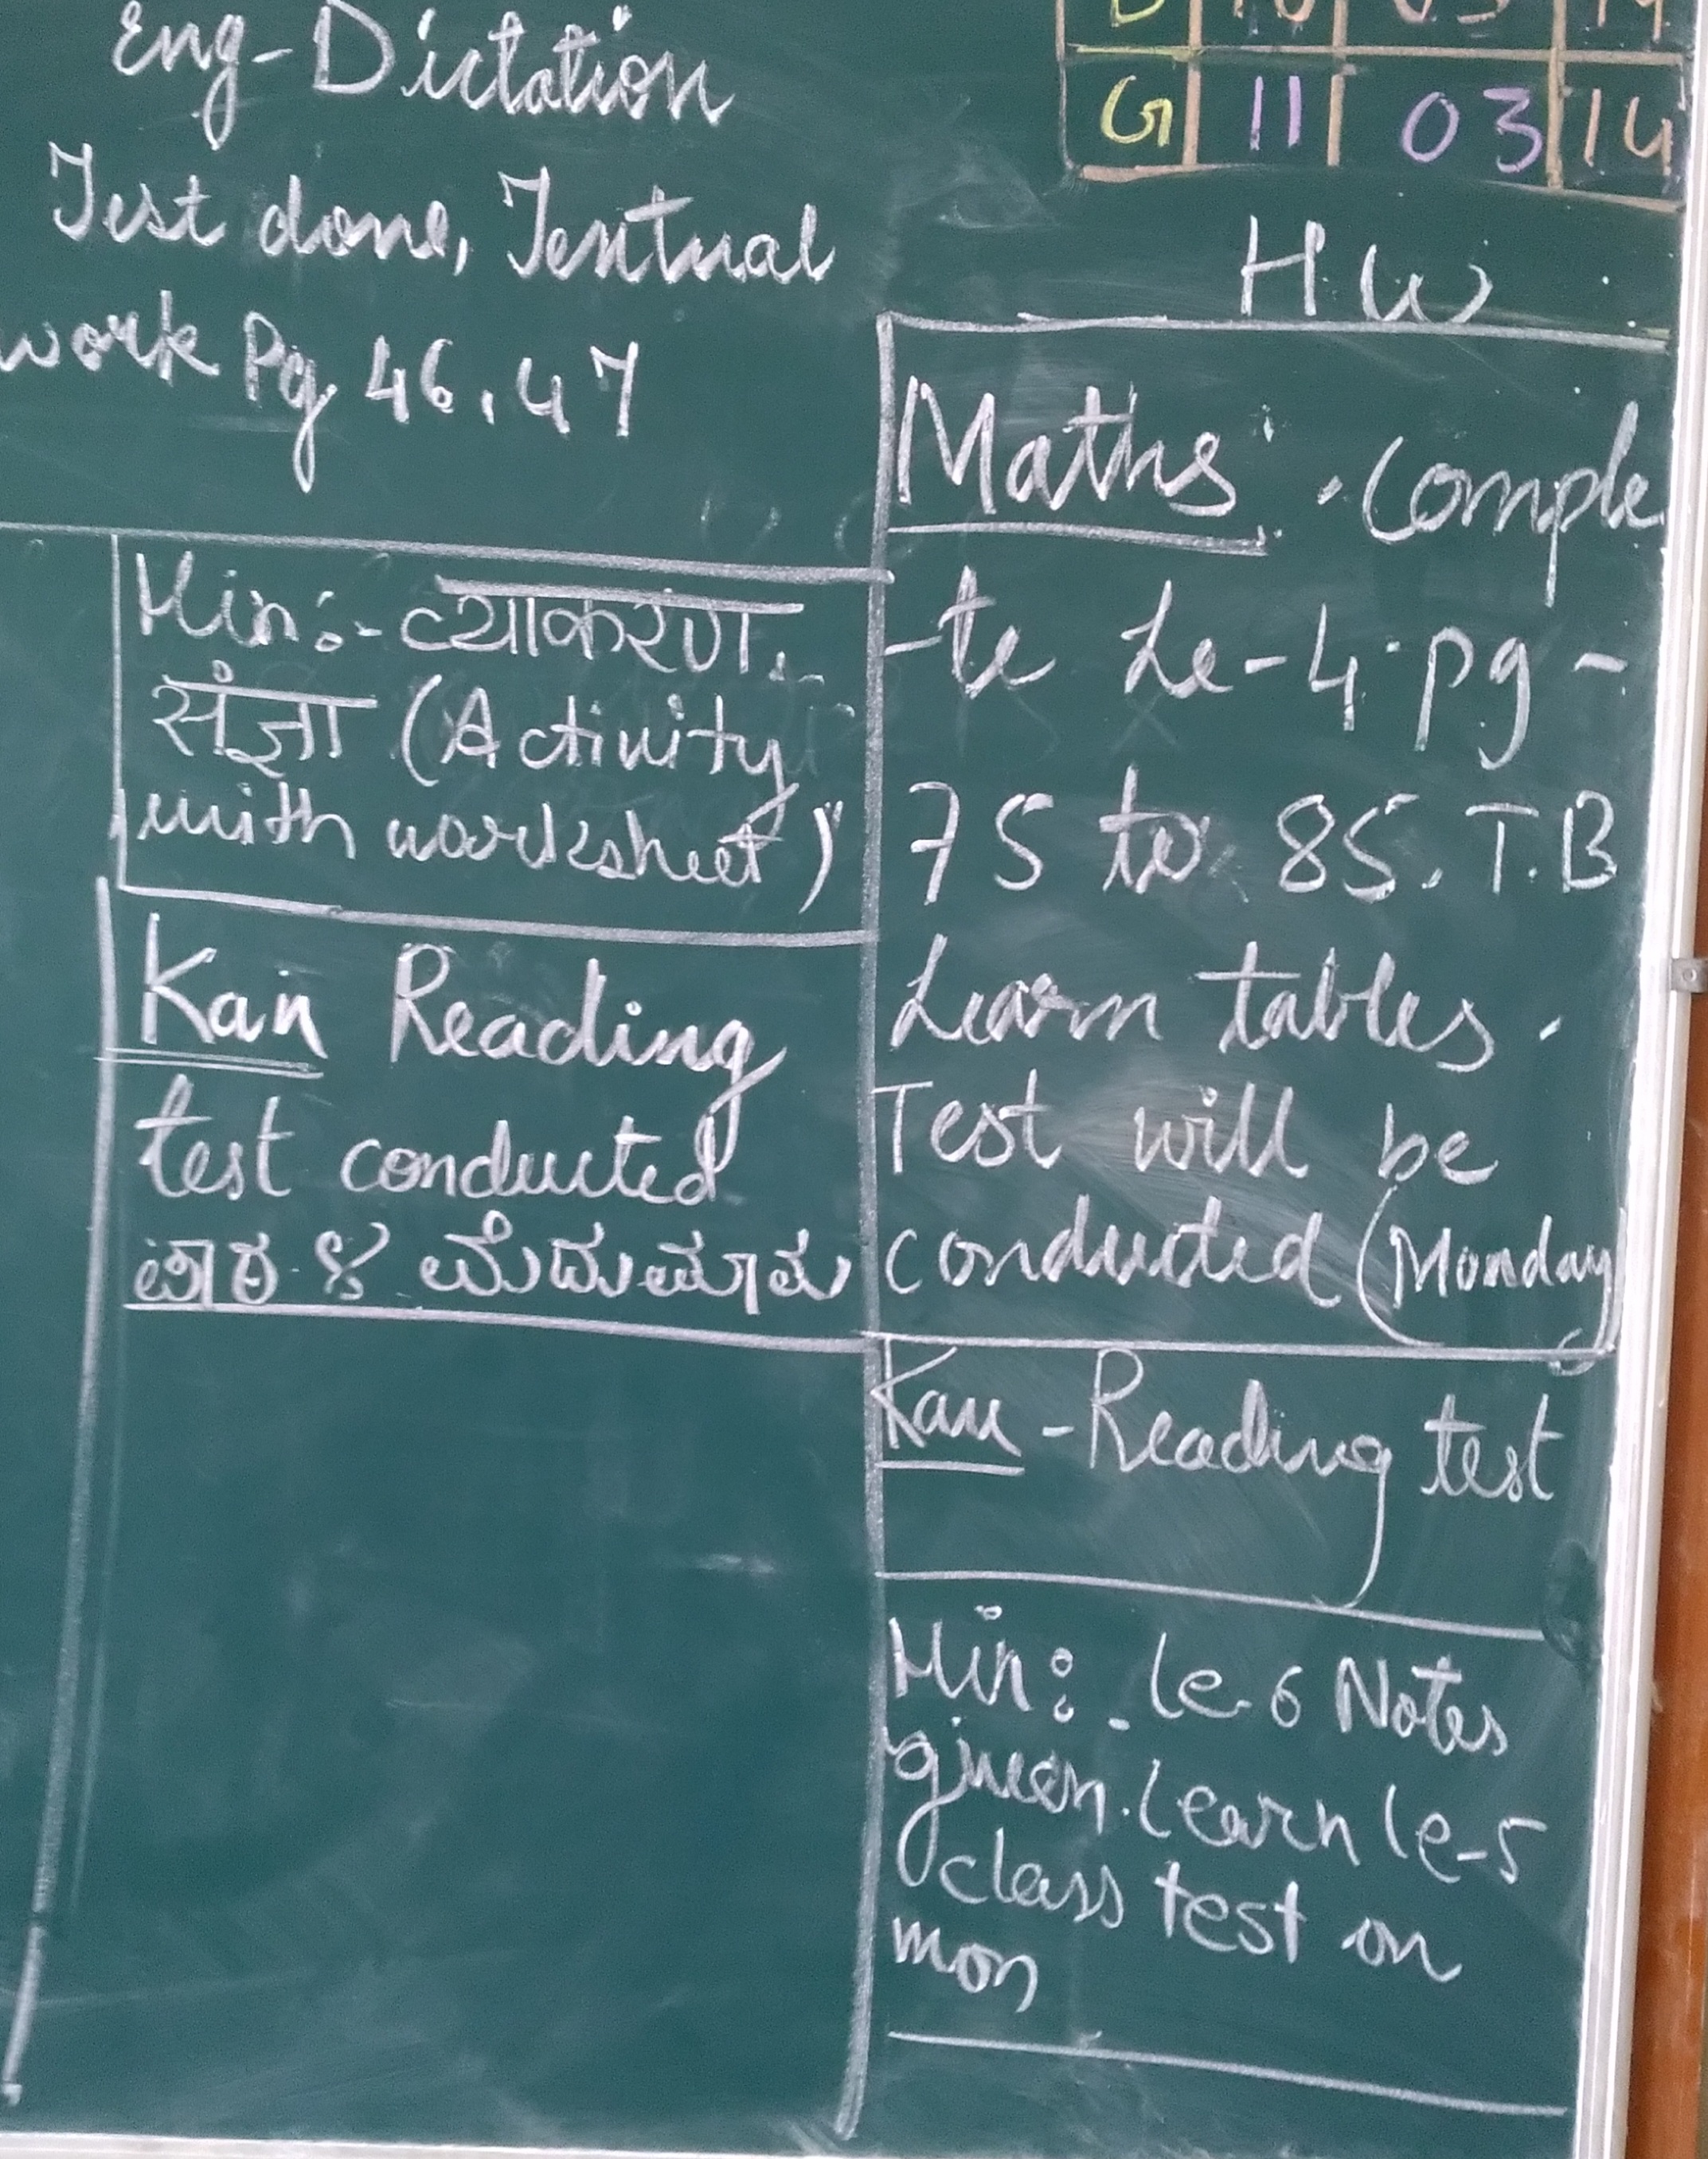 Eng-Dictation
Test done, Textual
work Pg 46, 47
Hin:- व्याकरण.
संज्ञा (Activity
with worksheet)
Kan Reading
test conducted
ಪಾಠ ೪
G 11 03 14
HW
Maths. Comple
-te Le-4 pg-
75 to 85. T.B
Learn tables.
Test will be
conducted (Monday)
Kan - Reading test
Hin:- le-6 Notes
given. learn le-5
class test on
mon